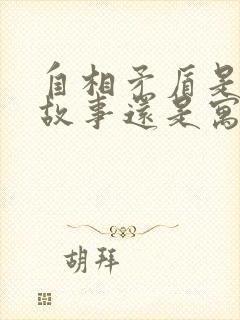 自相矛盾是
故事還是寓
胡拜